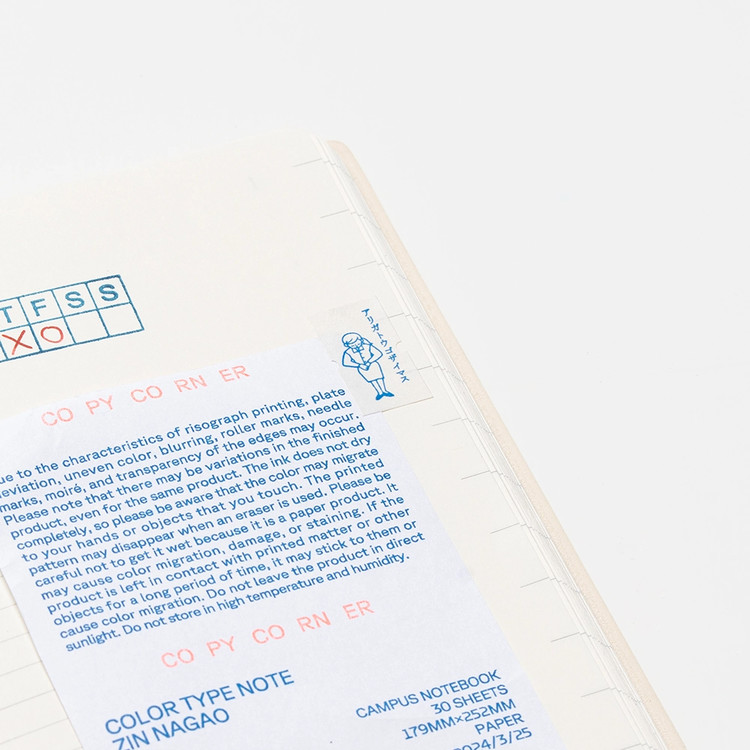 T F S S
X O
アリガトウゴザイマス
CO PY CO RN ER
ue to the characteristics of risograph printing, plate
eviation, uneven color, blurring, roller marks, needle
marks, moiré, and transparency of the edges may occur.
Please note that there may be variations in the finished
product, even for the same product. The ink does not dry
completely, so please be aware that the color may migrate
to your hands or objects that you touch. The printed
pattern may disappear when an eraser is used. Please be
careful not to get it wet because it is a paper product. It
may cause color migration, damage, or staining. If the
product is left in contact with printed matter or other
objects for a long period of time, it may stick to them or
cause color migration. Do not leave the product in direct
sunlight. Do not store in high temperature and humidity.
CO PY CO RN ER
COLOR TYPE NOTE
ZIN NAGAO
CAMPUS NOTEBOOK
30 SHEETS
179MM×252MM
PAPER
2024/3/25